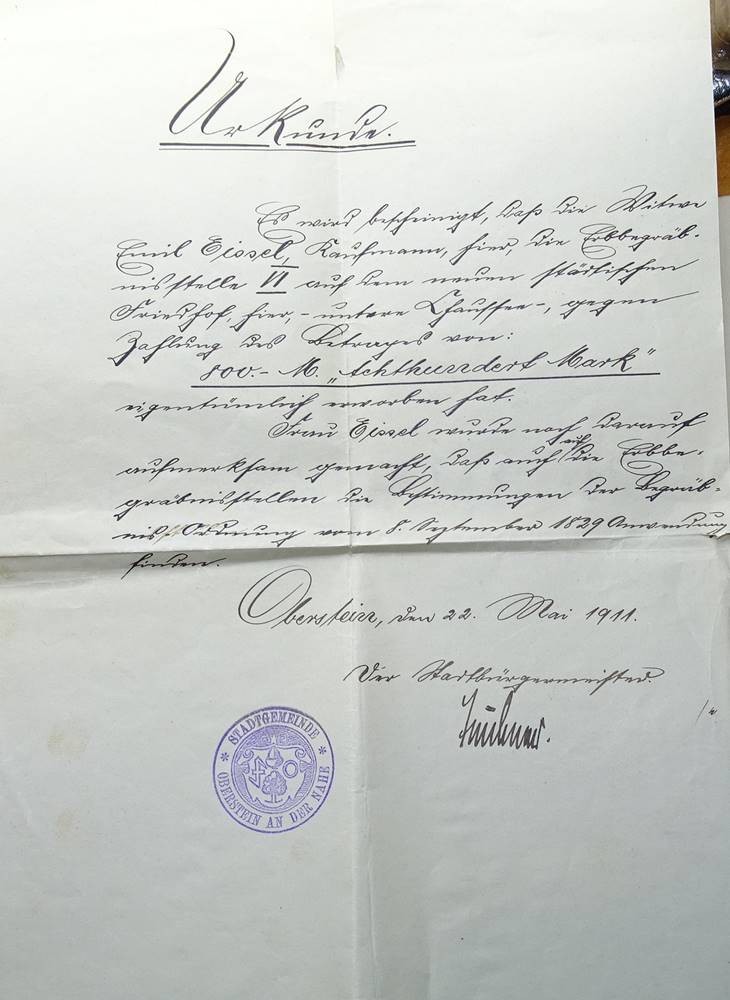 Urkunde.
Es wird bescheinigt, daß die Witwe
Emil Eissel, Kaufmann, hier, die Erbbegräb-
nisstelle VI auf dem neuen städtischen
Friedhof, hier, - untere Chaussee -, gegen
Zahlung des Betrages von:
800.- M. "Achthundert Mark"
eigentümlich erworben hat.
Frau Eissel wurde noch darauf
aufmerksam gemacht, daß auch auf die Erbbe-
gräbnisstellen die Bestimmungen der Begräb-
nis Ordnung vom 8. September 1829 Anwendung
finden.
Oberstein, den 22. Mai 1911.
Der Stadtbürgermeister.
* STADTGEMEINDE *
OBERSTEIN AN DER NAHE